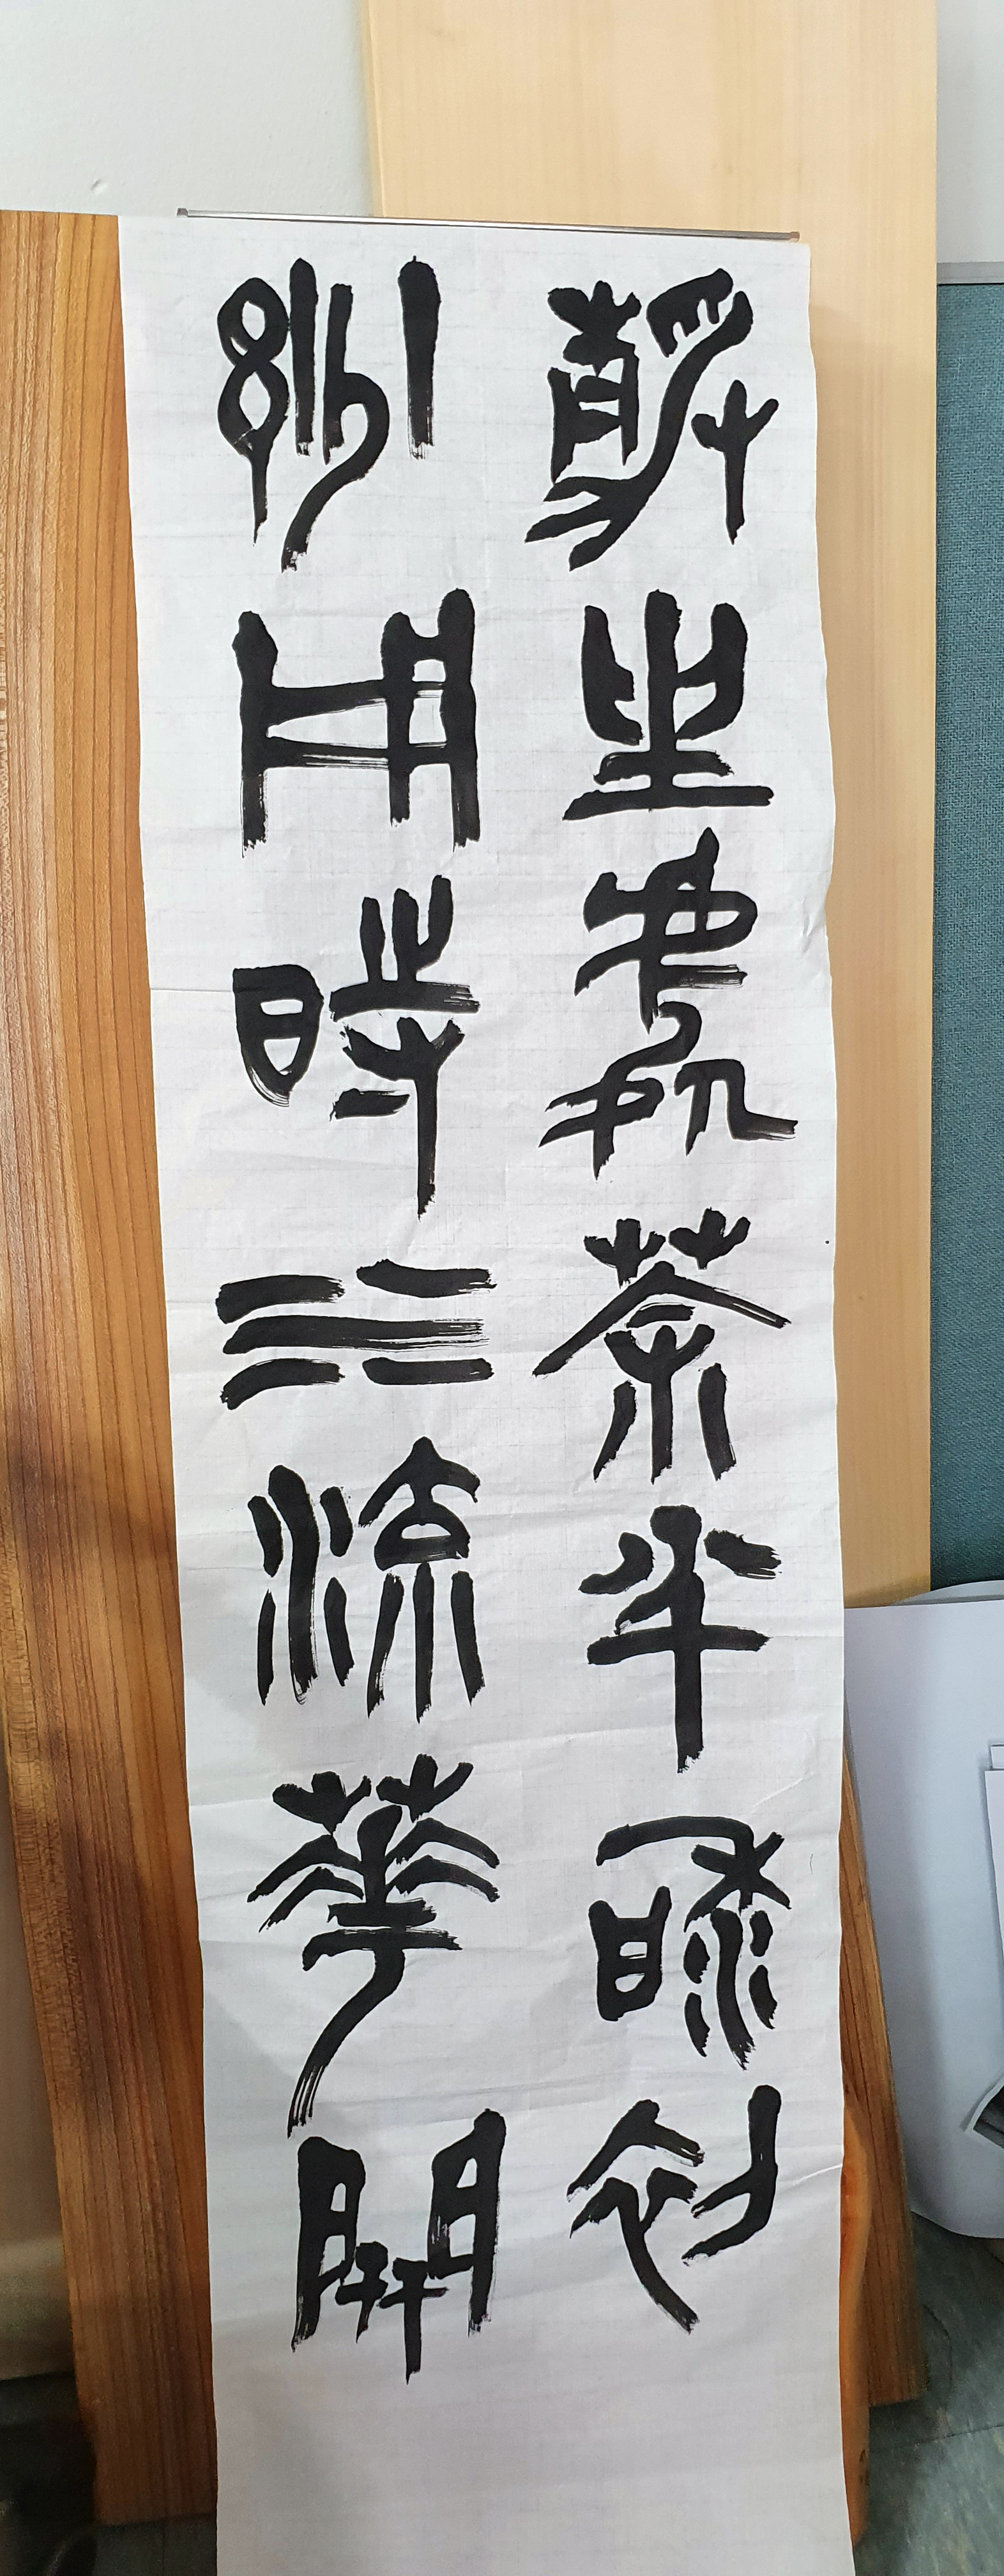 靜坐處茶半香初
妙用時水流華開